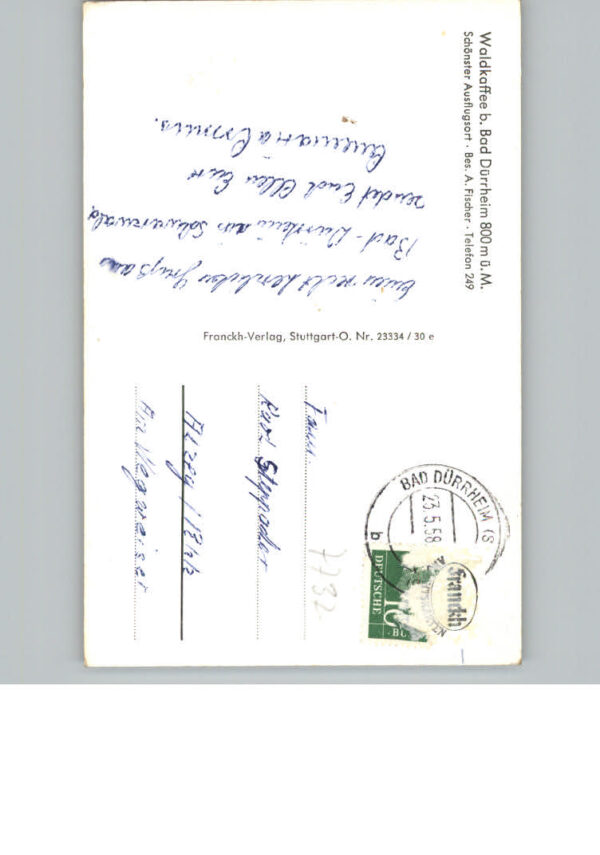 Waldkaffee b. Bad Dürrheim 800 m ü. M.
Schönster Ausflugsort · Bes. A. Fischer · Telefon 249
recht herzlichen Gruß aus
Bad-Dürrheim im Schwarzwald
sendet Euch Allen Eure
Franckh-Verlag, Stuttgart-O. Nr. 23334 / 30 e
BAD DÜRRHEIM (S
23.5.58
b
DEUTSCHE
10
BU
franckh
Fam.
Karl
Alzey /
Am Wegweiser
7732